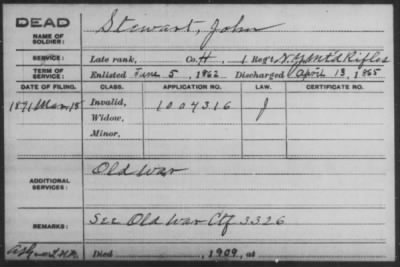 DEAD
NAME OF SOLDIER:
Stewart, John
SERVICE:
Late rank, Co. H, 1 Reg't N.Y. Mt'd Rifles
TERM OF SERVICE:
Enlisted June 5, 1862 Discharged April 13, 1865
DATE OF FILING. CLASS. APPLICATION NO. LAW. CERTIFICATE NO.
1891 Mar. 18 Invalid, 1004316 J
Widow,
Minor,
ADDITIONAL SERVICES:
Old War
REMARKS:
See Old War Ctf 3326
Died , 1909, at